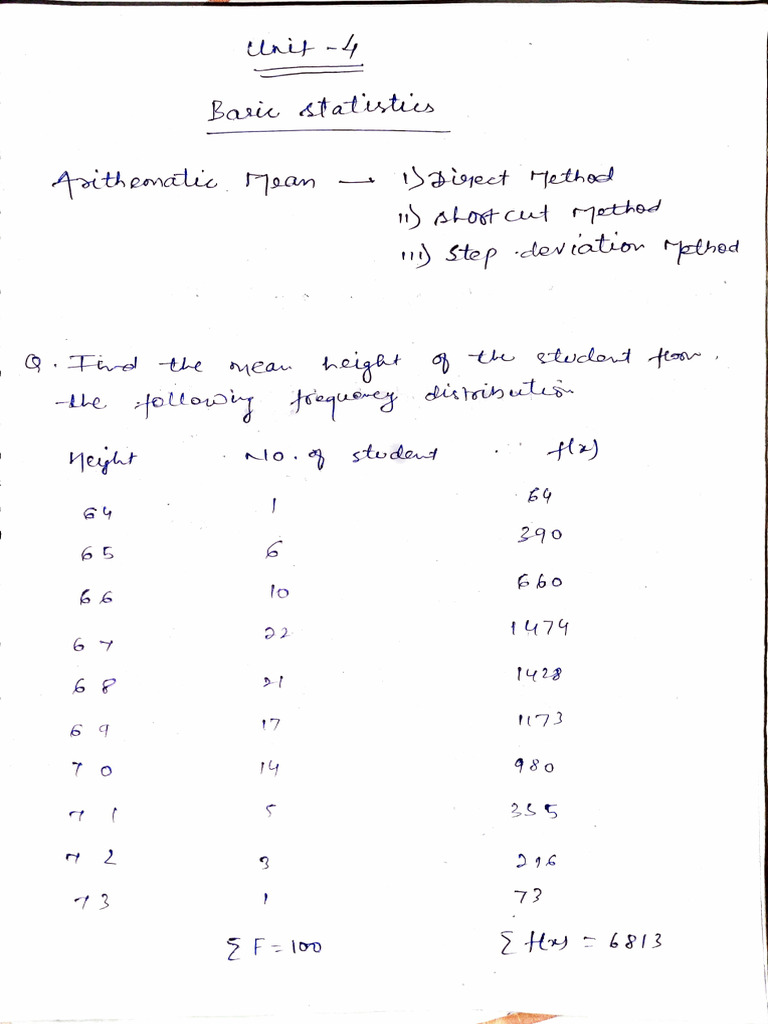 Unit - 4
Basic Statistics
Arithematic Mean → i) Direct Method
ii) Short cut Method
iii) Step deviation Method
Q. Find the mean height of the student from
the following frequency distribution
Height No. of student f(x)
64 1 64
65 6 390
66 10 660
67 22 1474
68 21 1428
69 17 1173
70 14 980
71 5 355
72 3 216
73 1 73
Σ F = 100 Σ f(x) = 6813